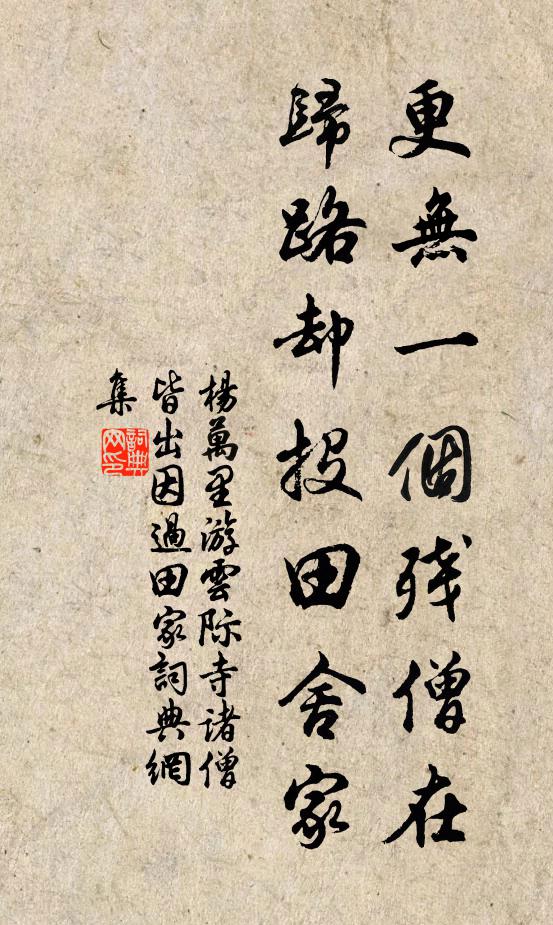 更無一個殘僧在
歸路却投田舍家
楊萬里游雲際寺諸僧
皆出因過田家詞典網
集
詞典
网印